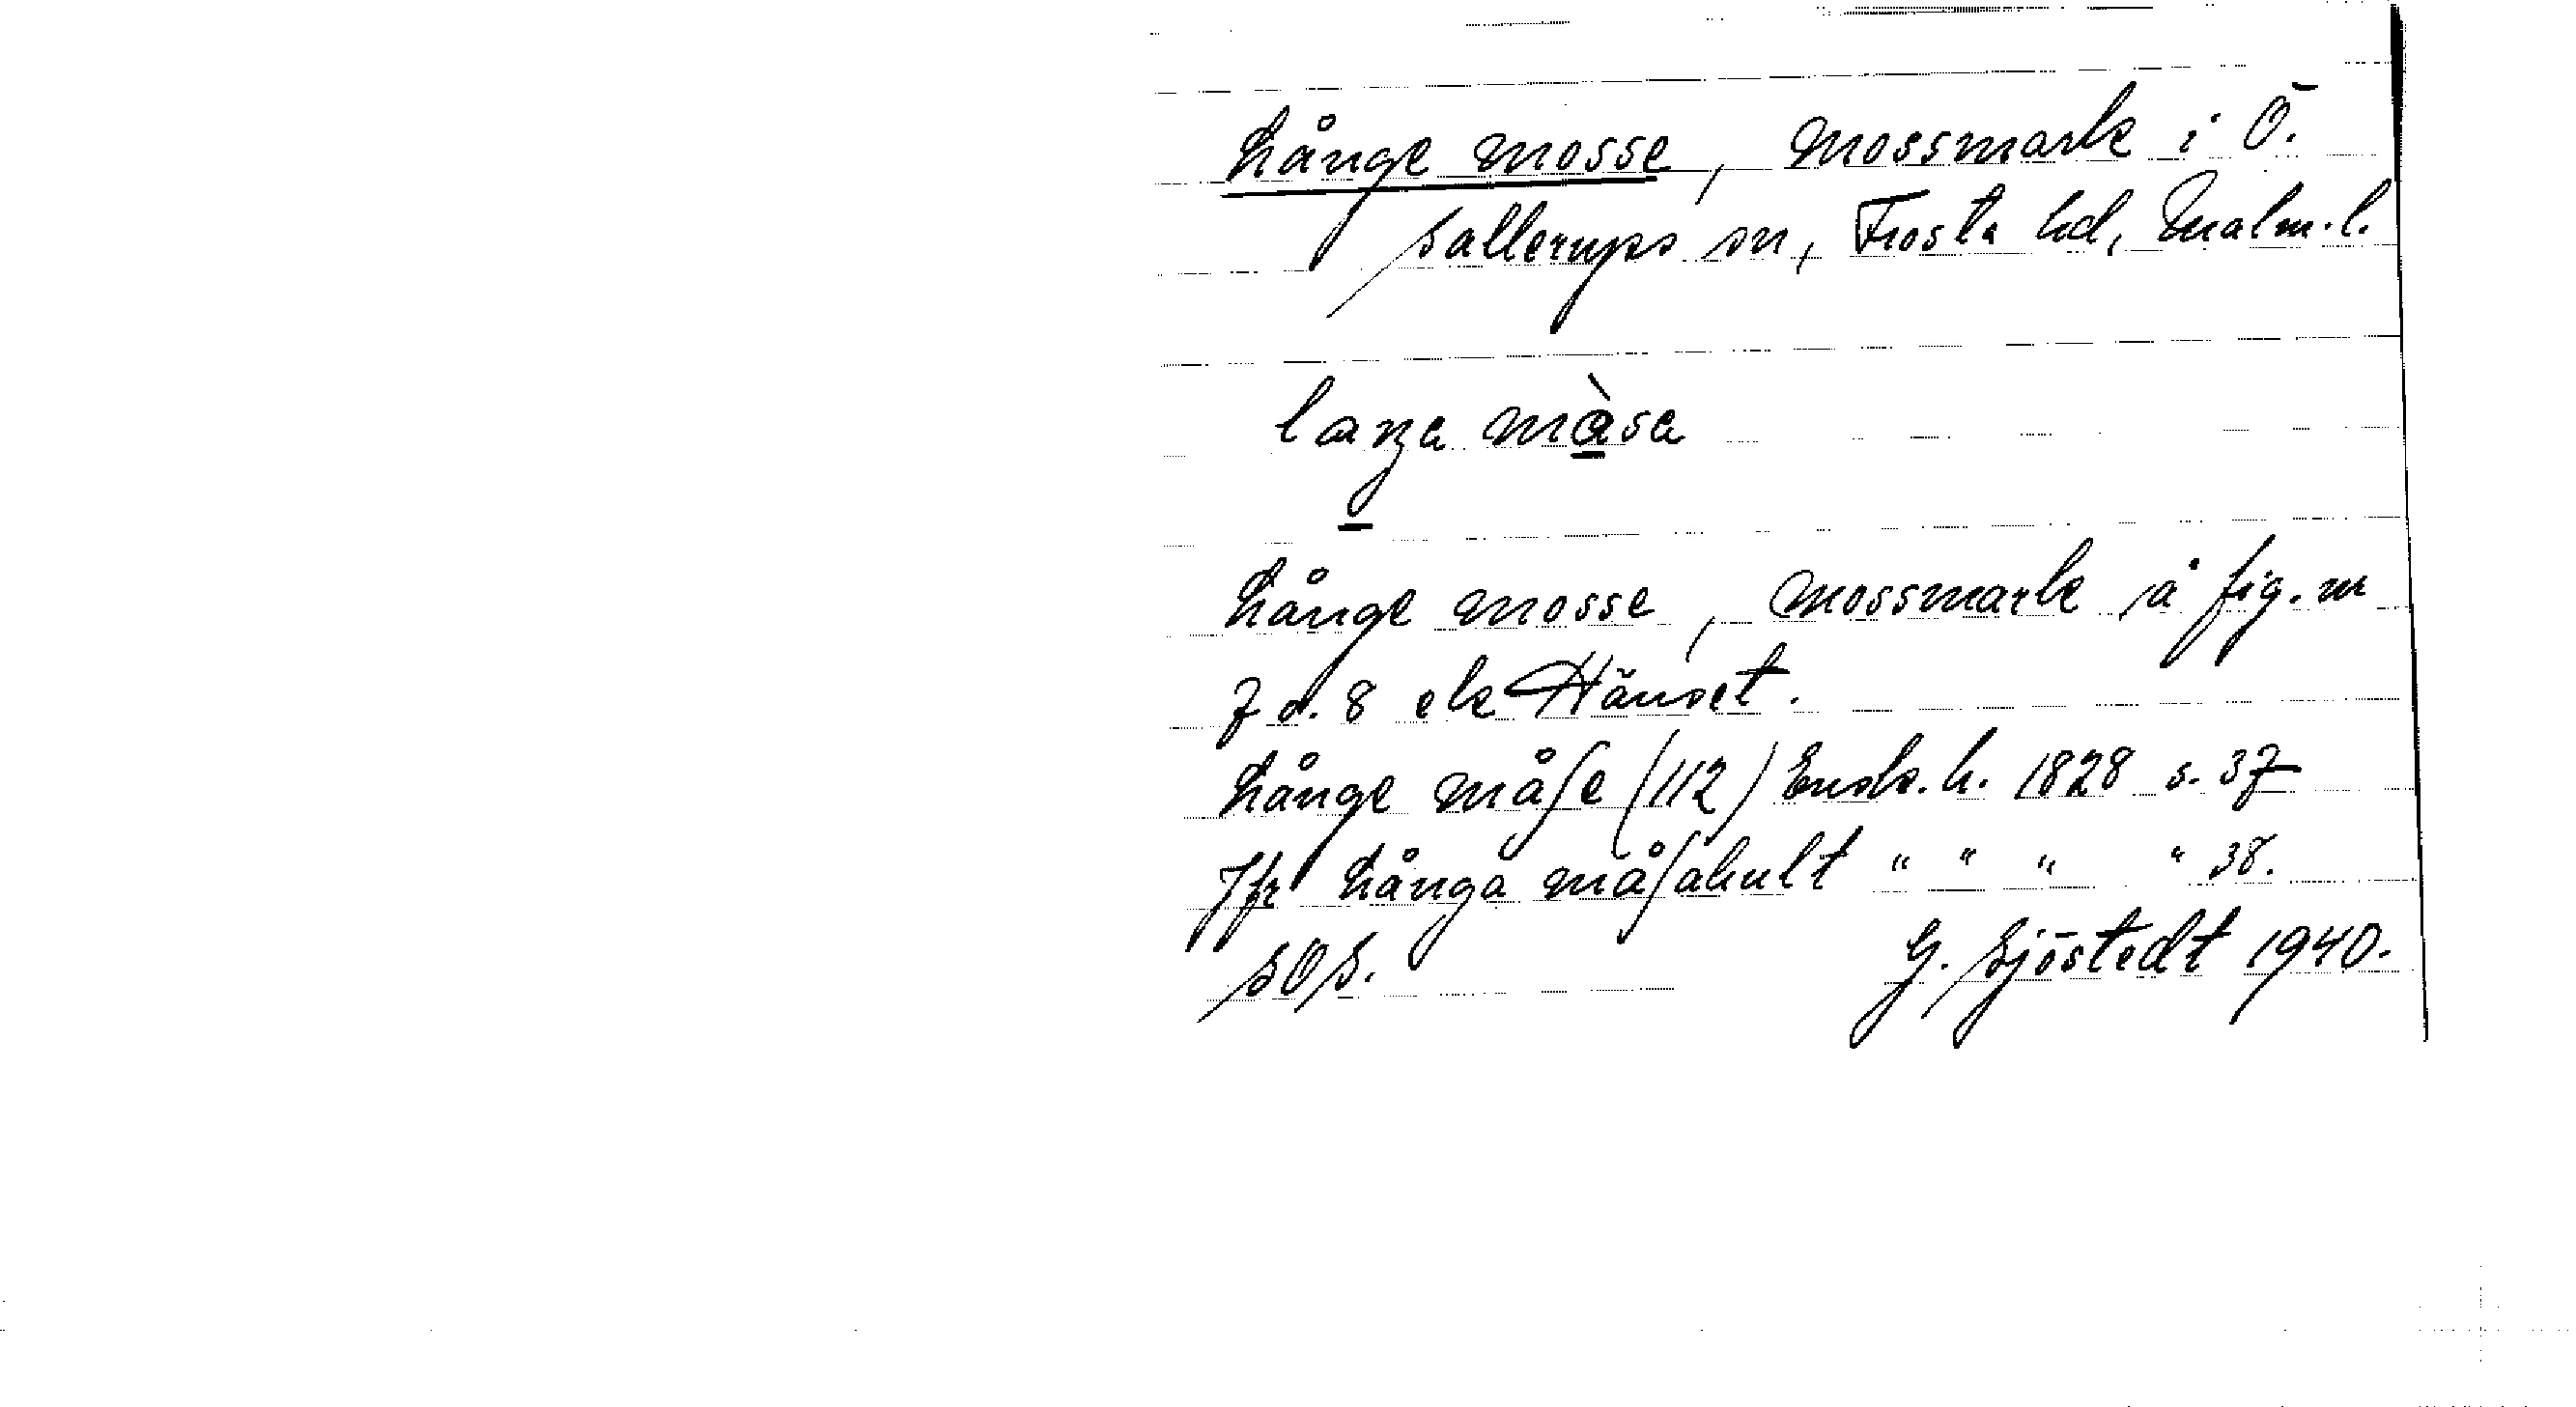 Långe mosse, mossmark i Ö.
Sallerups sn, Frosta hd, Malm. l.
laŋa màsa
Långe mosse, mossmark å fig. m
7 o. 8 ek Hänset.
Långe måſe (112) Ensk. h. 1828 s. 37
Jfr Långa måſahult " " " " 38.
SOS. G. Sjöstedt 1940.